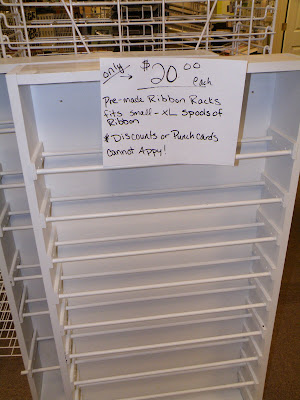 only → $20.00
each
Pre-made Ribbon Racks
fits small - XL spools of
Ribbon
* Discounts or Punch cards
Cannot Appy!